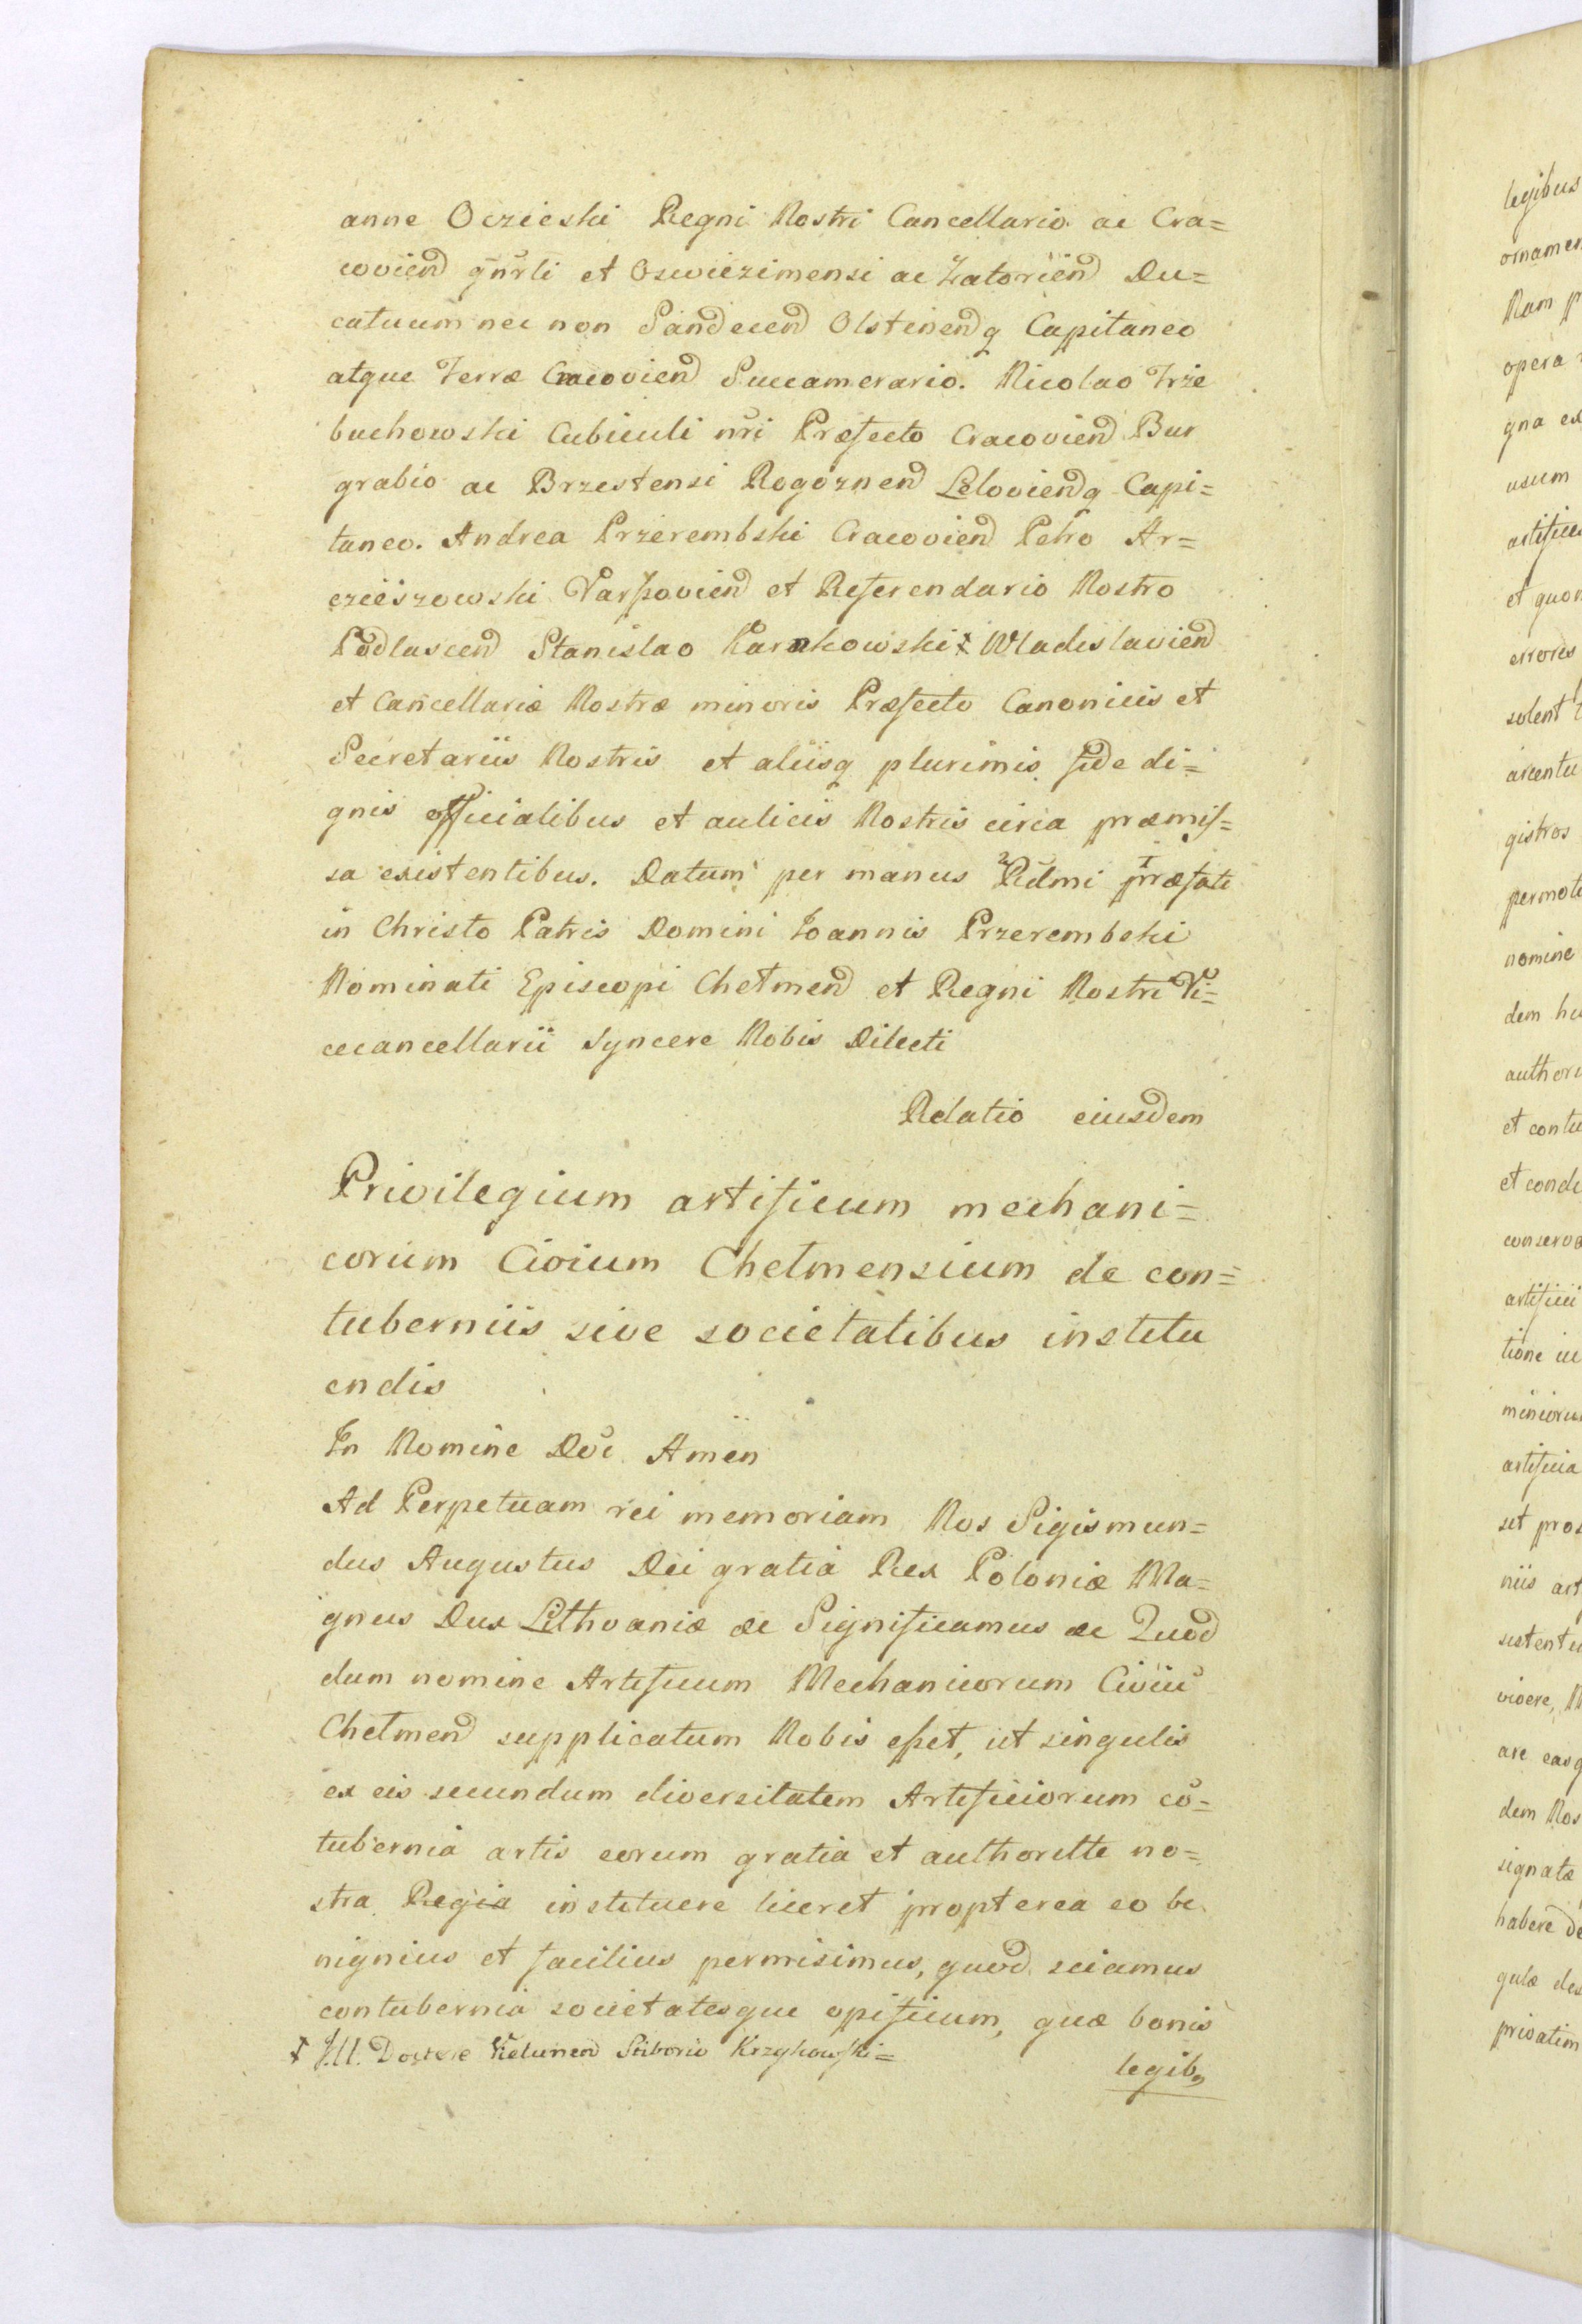 anne Oczieski Regni Nostri Cancellario ac Cra=
coviend gnrli et Oswiezimensi ac Zatoriend Du=
catuum nec non Sandecend Olstinendq Capitaneo
atque Terræ Cracoviend Succamerario. Nicolao Trze
buchowski Cubiculi nri Præfecto Cracoviend Bur
grabio ac Brzestensi Rogoznend Leloviendq Capi=
taneo. Andrea Przerembski Cracoviend Petro Ar=
czieszowski Varssoviend et Referendario Nostro
Podlascend Stanislao Karnkowski Wladislaviend
et Cancellariæ Nostræ minoris Præfecto Canonicis et
Secretariis Nostris et aliisq plurimis fide di=
gnis officialibus et aulicis Nostris circa præmis=
sa existentibus. Datum per manus Rdmi præfati
in Christo Patris Domini Ioannis Przerembski
Nominati Episcopi Chełmend et Regni Nostri Vi=
cecancellarii Syncere Nobis Dilecti
Relatio eiusdem
Privilegium artificum mechani=
corum Civium Chelmensium de con=
tuberniis sive societatibus institu
endis
In Nomine Dni Amen
Ad Perpetuam rei memoriam Nos Sigismun=
dus Augustus Dei gratia Rex Poloniæ Ma=
gnus Dux Lithvaniæ &c Significamus &c Quod
dum nomine Artificum Mechanicorum Civiu
Chełmend supplicatum Nobis esset, ut singulis
ex eis secundum diversitatem Artificiorum co=
tubernia artis eorum gratia et authoritte no=
stra Regia instituere liceret propterea eo be
nignius et facilius permisimus, quod sciamus
contubernia societatesque opificum, quæ bonis
Krzykowski=
legibq
legibus
ornamen
Nam p
opera
gna ex
usum
artifice
et quon
errores
solent
arcentu
gistros
permoti
nomine
dem hu
authori
et contu
et condi
conserva
artifici
tione iu
miniorum
artificia
set pros
niis art
sustentu
vivere, N
are easq
dem Nos
signatæ
habere de
gulæ des
privatim